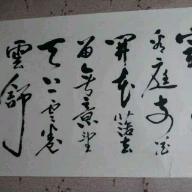 寵
看庭前
開花落去
留無意望
天上雲卷
雲舒